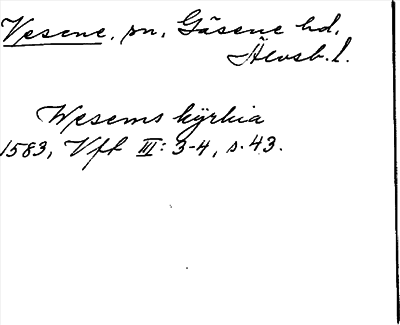 Vesene, sn, Gäsene hd,
Älvsb. l.
Wesems kÿrkia
1583, Vft III: 3-4, s. 43.